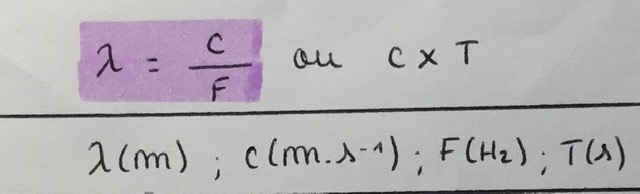 λ = C/F ou C x T
λ(m) ; C(m.s⁻¹) ; F(Hz) ; T(s)